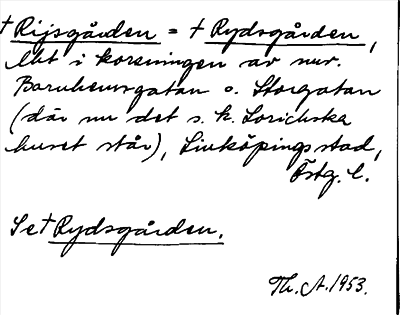 †Rijsgården = †Rydsgården,
låt i korsningen av nuv.
Barnhemsgatan o. Storgatan
(där nu det s. k. Lorichska
huset står), Linköpings stad,
Östg. l.
Se †Rydsgården.
Th. A. 1953.